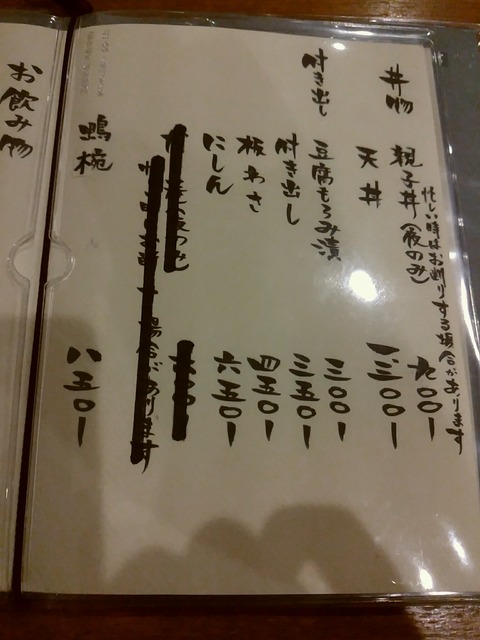 丼物
親子丼(夜のみ) 九〇〇ー
忙しい時はお断りする場合があります
天丼 一、三〇〇ー
付き出し
豆腐もろみ漬 三〇〇ー
付き出し 三五〇ー
板わさ 四五〇ー
にしん 六五〇ー
場合があります
鴨椀 八五〇ー
お飲み物